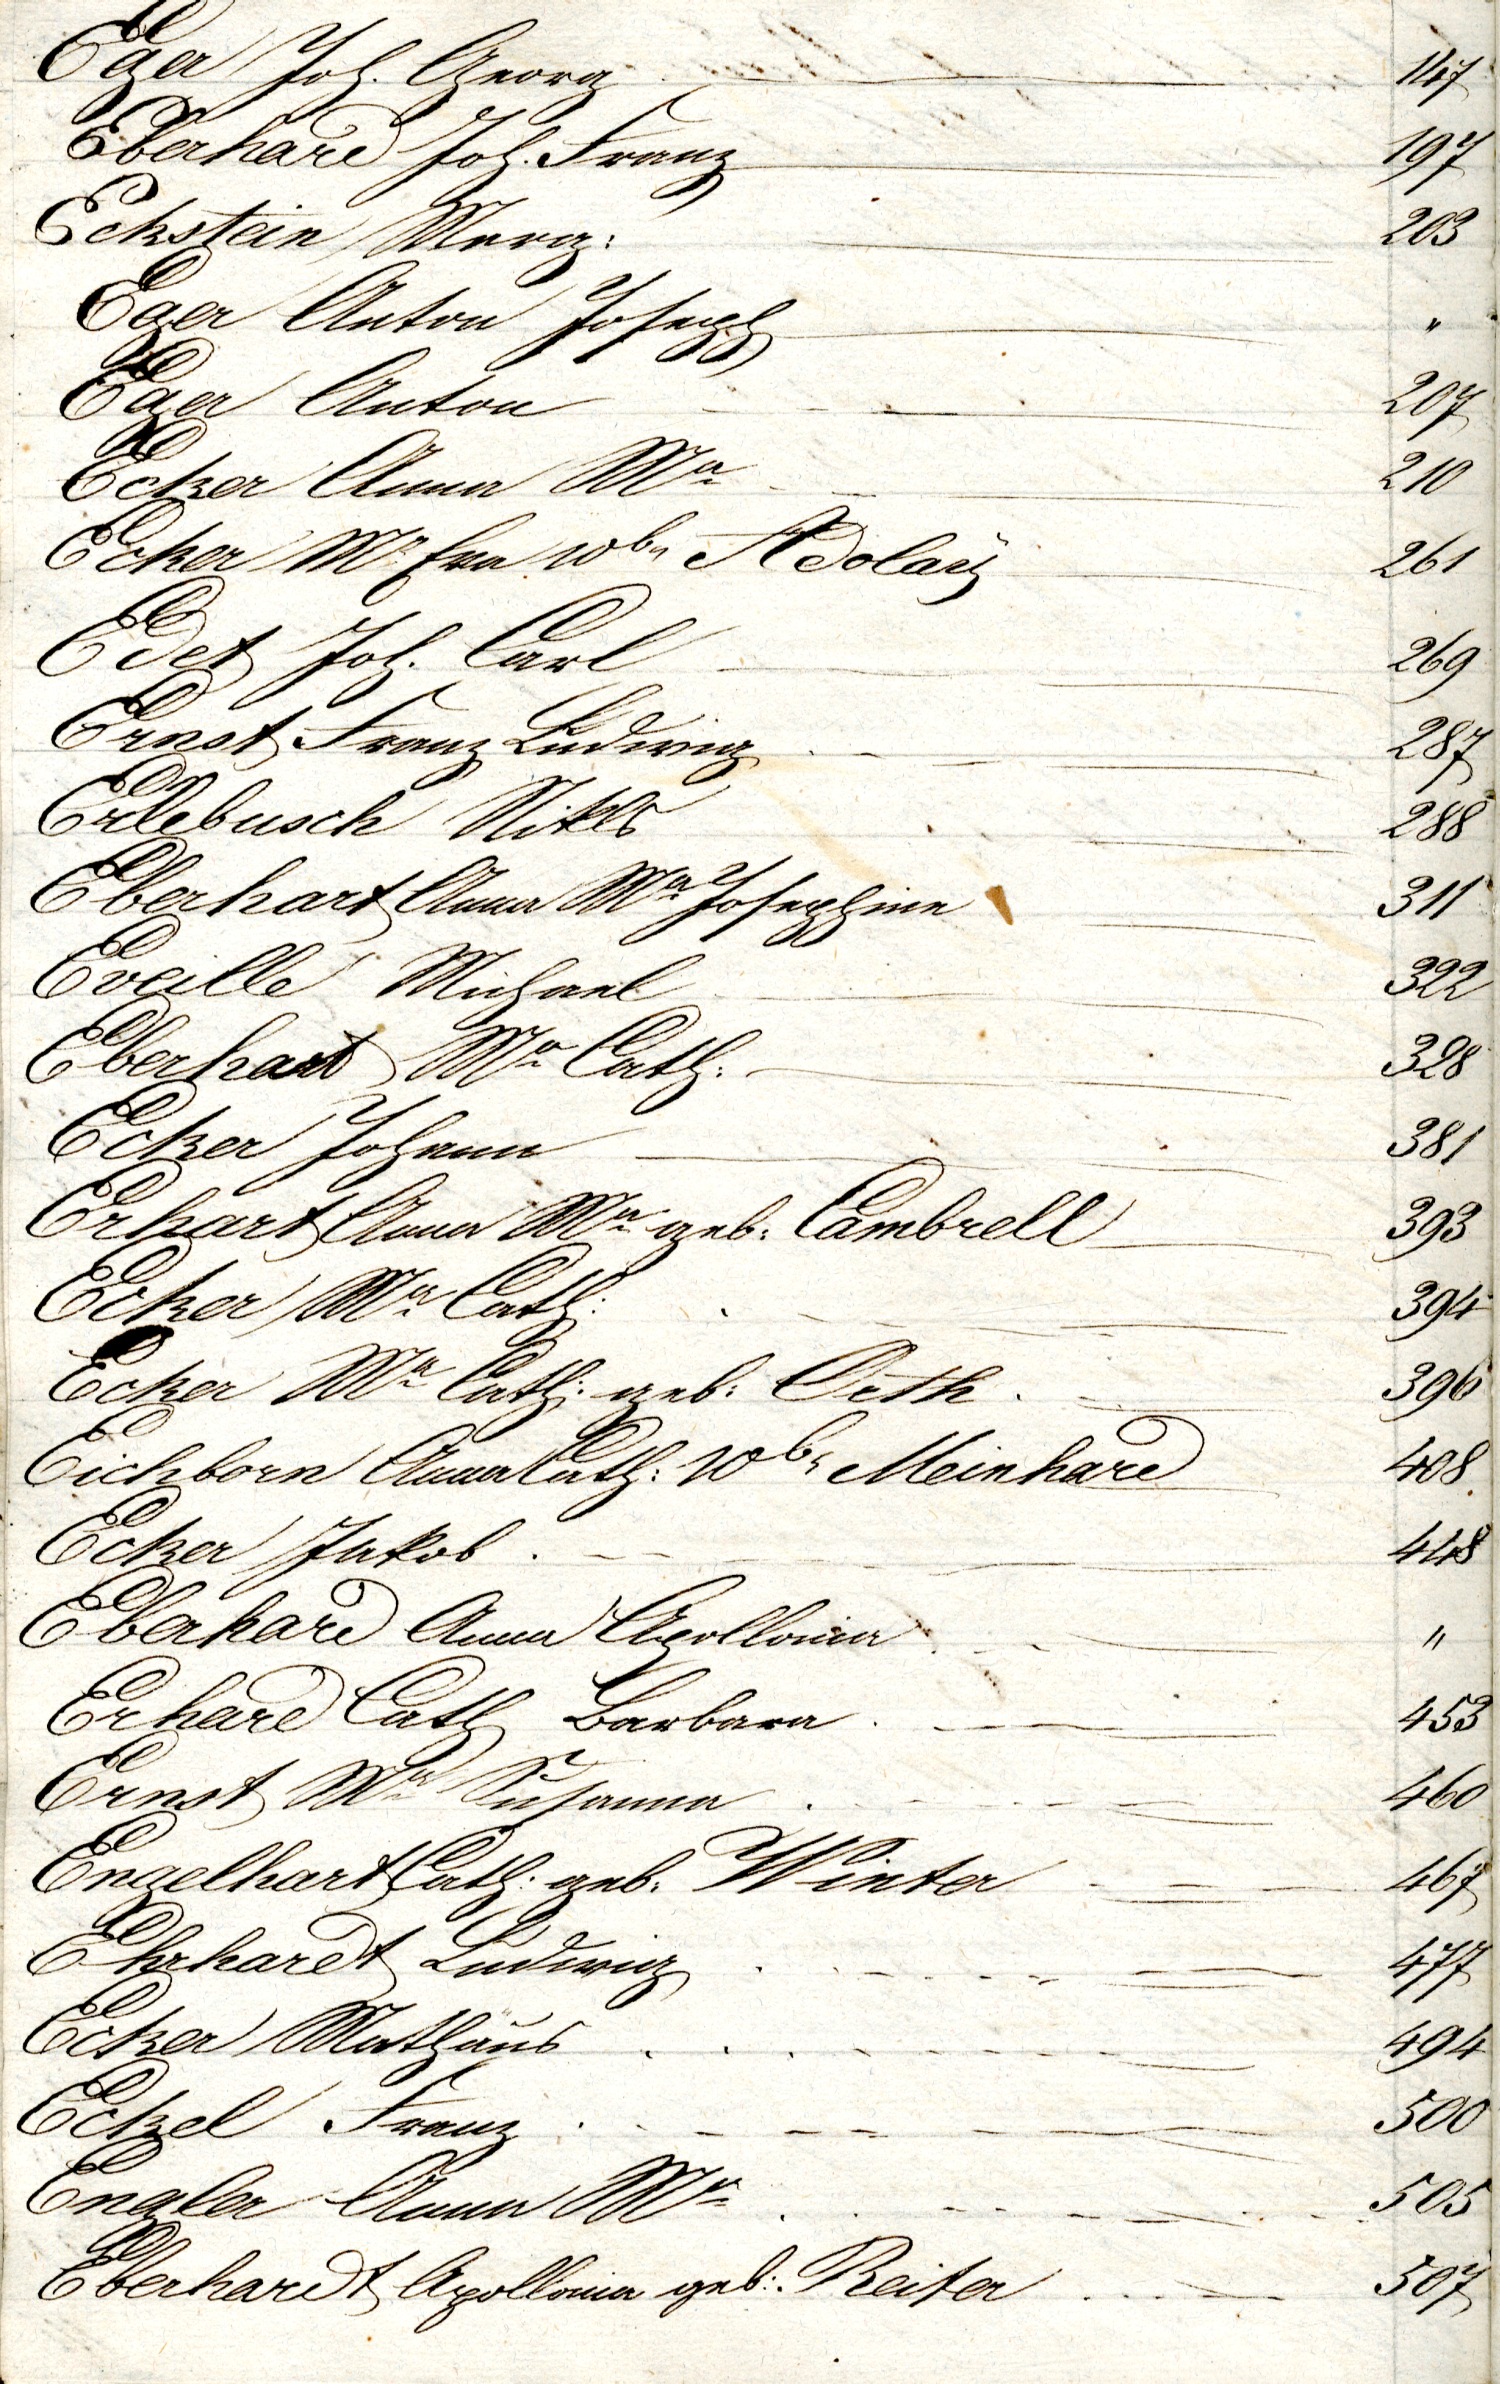 Eger Joh. Georg 147
Eberhard Joh. Franz 197
Eckstein Marg: 203
Eger Anton Joseph "
Eger Anton 207
Ecker Anna Ma 210
Ecker Ma Eva Adolaÿ 261
Edet Joh. Carl 269
Ernst Franz Ludwig 287
Erlebusch Nikls 288
Eberhart Anna Ma Josephine 311
Eveille Michael 322
Eberhart Ma Cath: 328
Ecker Johann 381
Erhart Anna Ma geb: Cambrell 393
Ecker Ma Cath: 394
Ecker Ma Cath: geb: Oeth 396
Eichborn Anna Cath: Meinhard 408
Ecker Jakob 448
Eberhard Anna Apollonia "
Erhard Cath Barbara 453
Ernst Ma Susanna 460
Engelhart Cath: geb: Winter 467
Ehrhardt Ludwig 477
Ecker Mathäus 494
Eckel Franz 500
Engler Anna Ma 505
Eberhardt Apollonia geb: Reiter 507